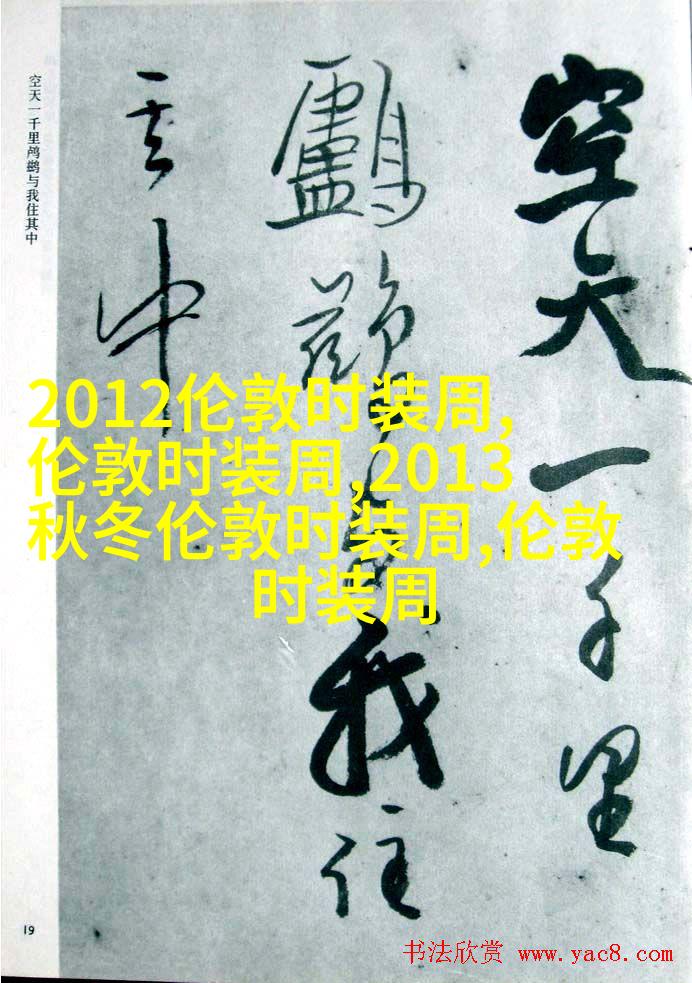 空天一千里鸬鹚与我住其中
空天一千里
鸕鷀与我住
其中
2012伦敦时装周,
伦敦时装周,2013
秋冬伦敦时装周,伦敦
时装周
19
书法欣赏 www.yac8.com